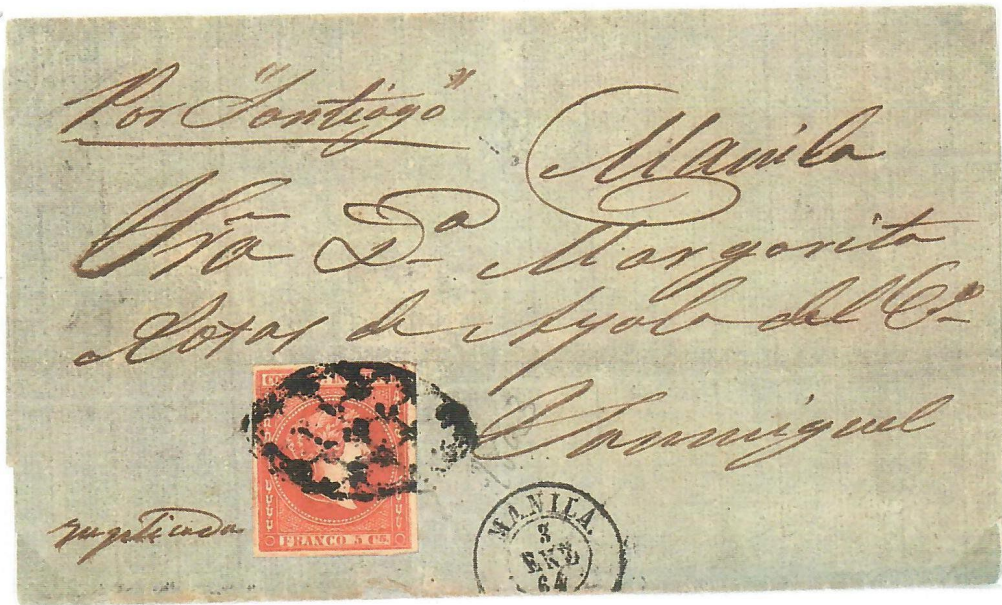 Por "Santiago"
Manila
Sra Da Margarita
Roxas de Ayala del Co
Sanmiguel
FRANCO 5 Cs.
MANILA
3
ENE
64